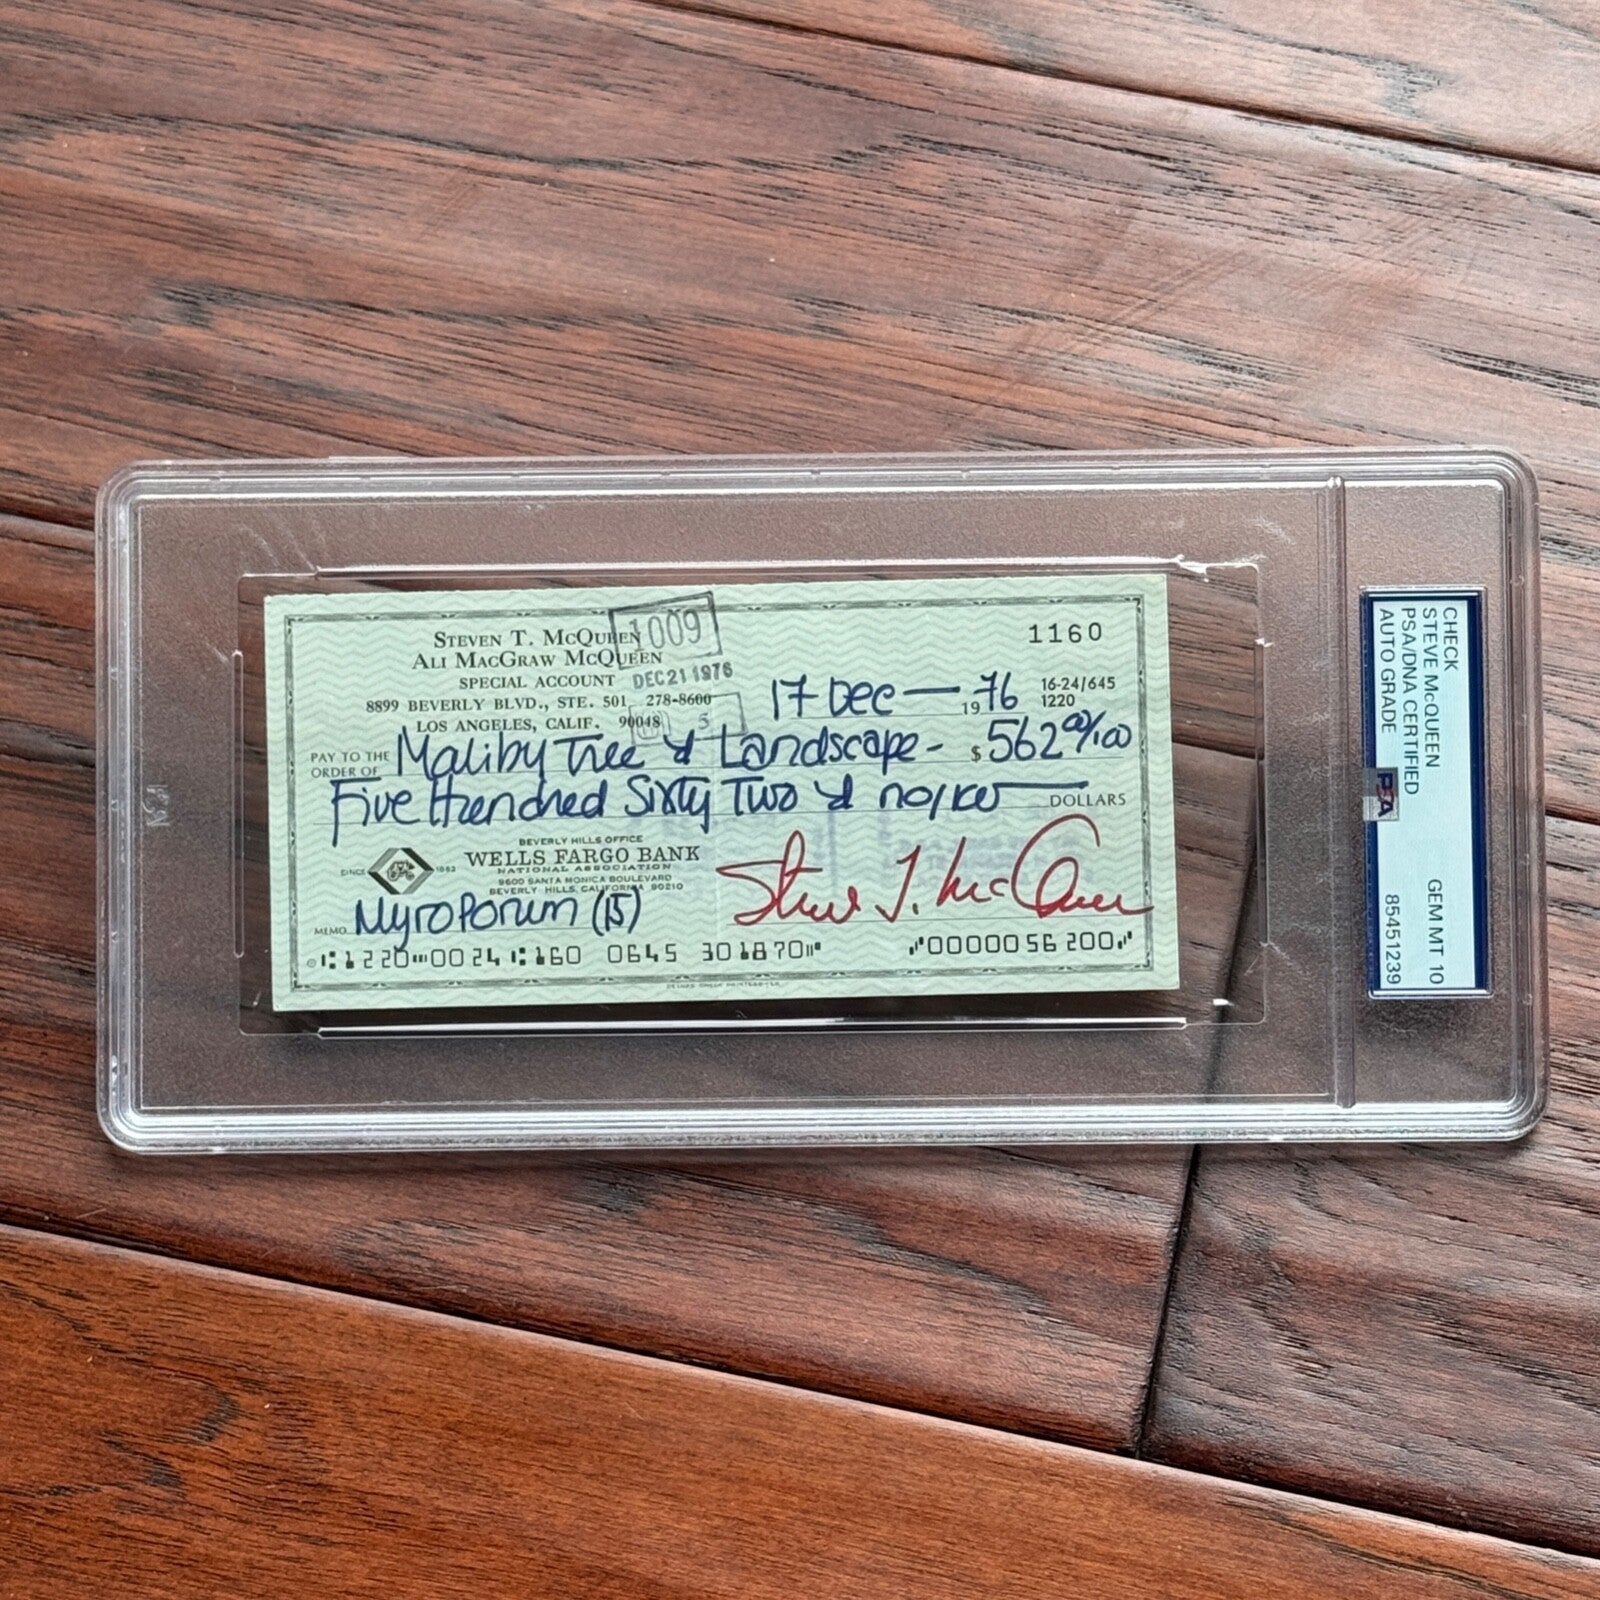 STEVEN T. MCQUEEN 1009
ALI MACGRAW MCQUEEN
SPECIAL ACCOUNT DEC 21 1976
8899 BEVERLY BLVD., STE. 501 278-8600
LOS ANGELES, CALIF. 90048 5
1160
17 Dec — 1976
16-24/645
1220
PAY TO THE ORDER OF Maliby Tree & Landscape - $ 562 00/100
Five Hundred Sixty Two & no/xx DOLLARS
BEVERLY HILLS OFFICE
SINCE 1852 WELLS FARGO BANK
NATIONAL ASSOCIATION
9600 SANTA MONICA BOULEVARD
BEVERLY HILLS, CALIFORNIA 90210
MEMO Myroporum (15) Steve T. McQueen
⑆1220⑉0024⑆160 0645 301870⑈ ⑇0000056200⑇
CHECK
STEVE McQUEEN
PSA/DNA CERTIFIED GEM MT 10
AUTO GRADE 85451239
PSA